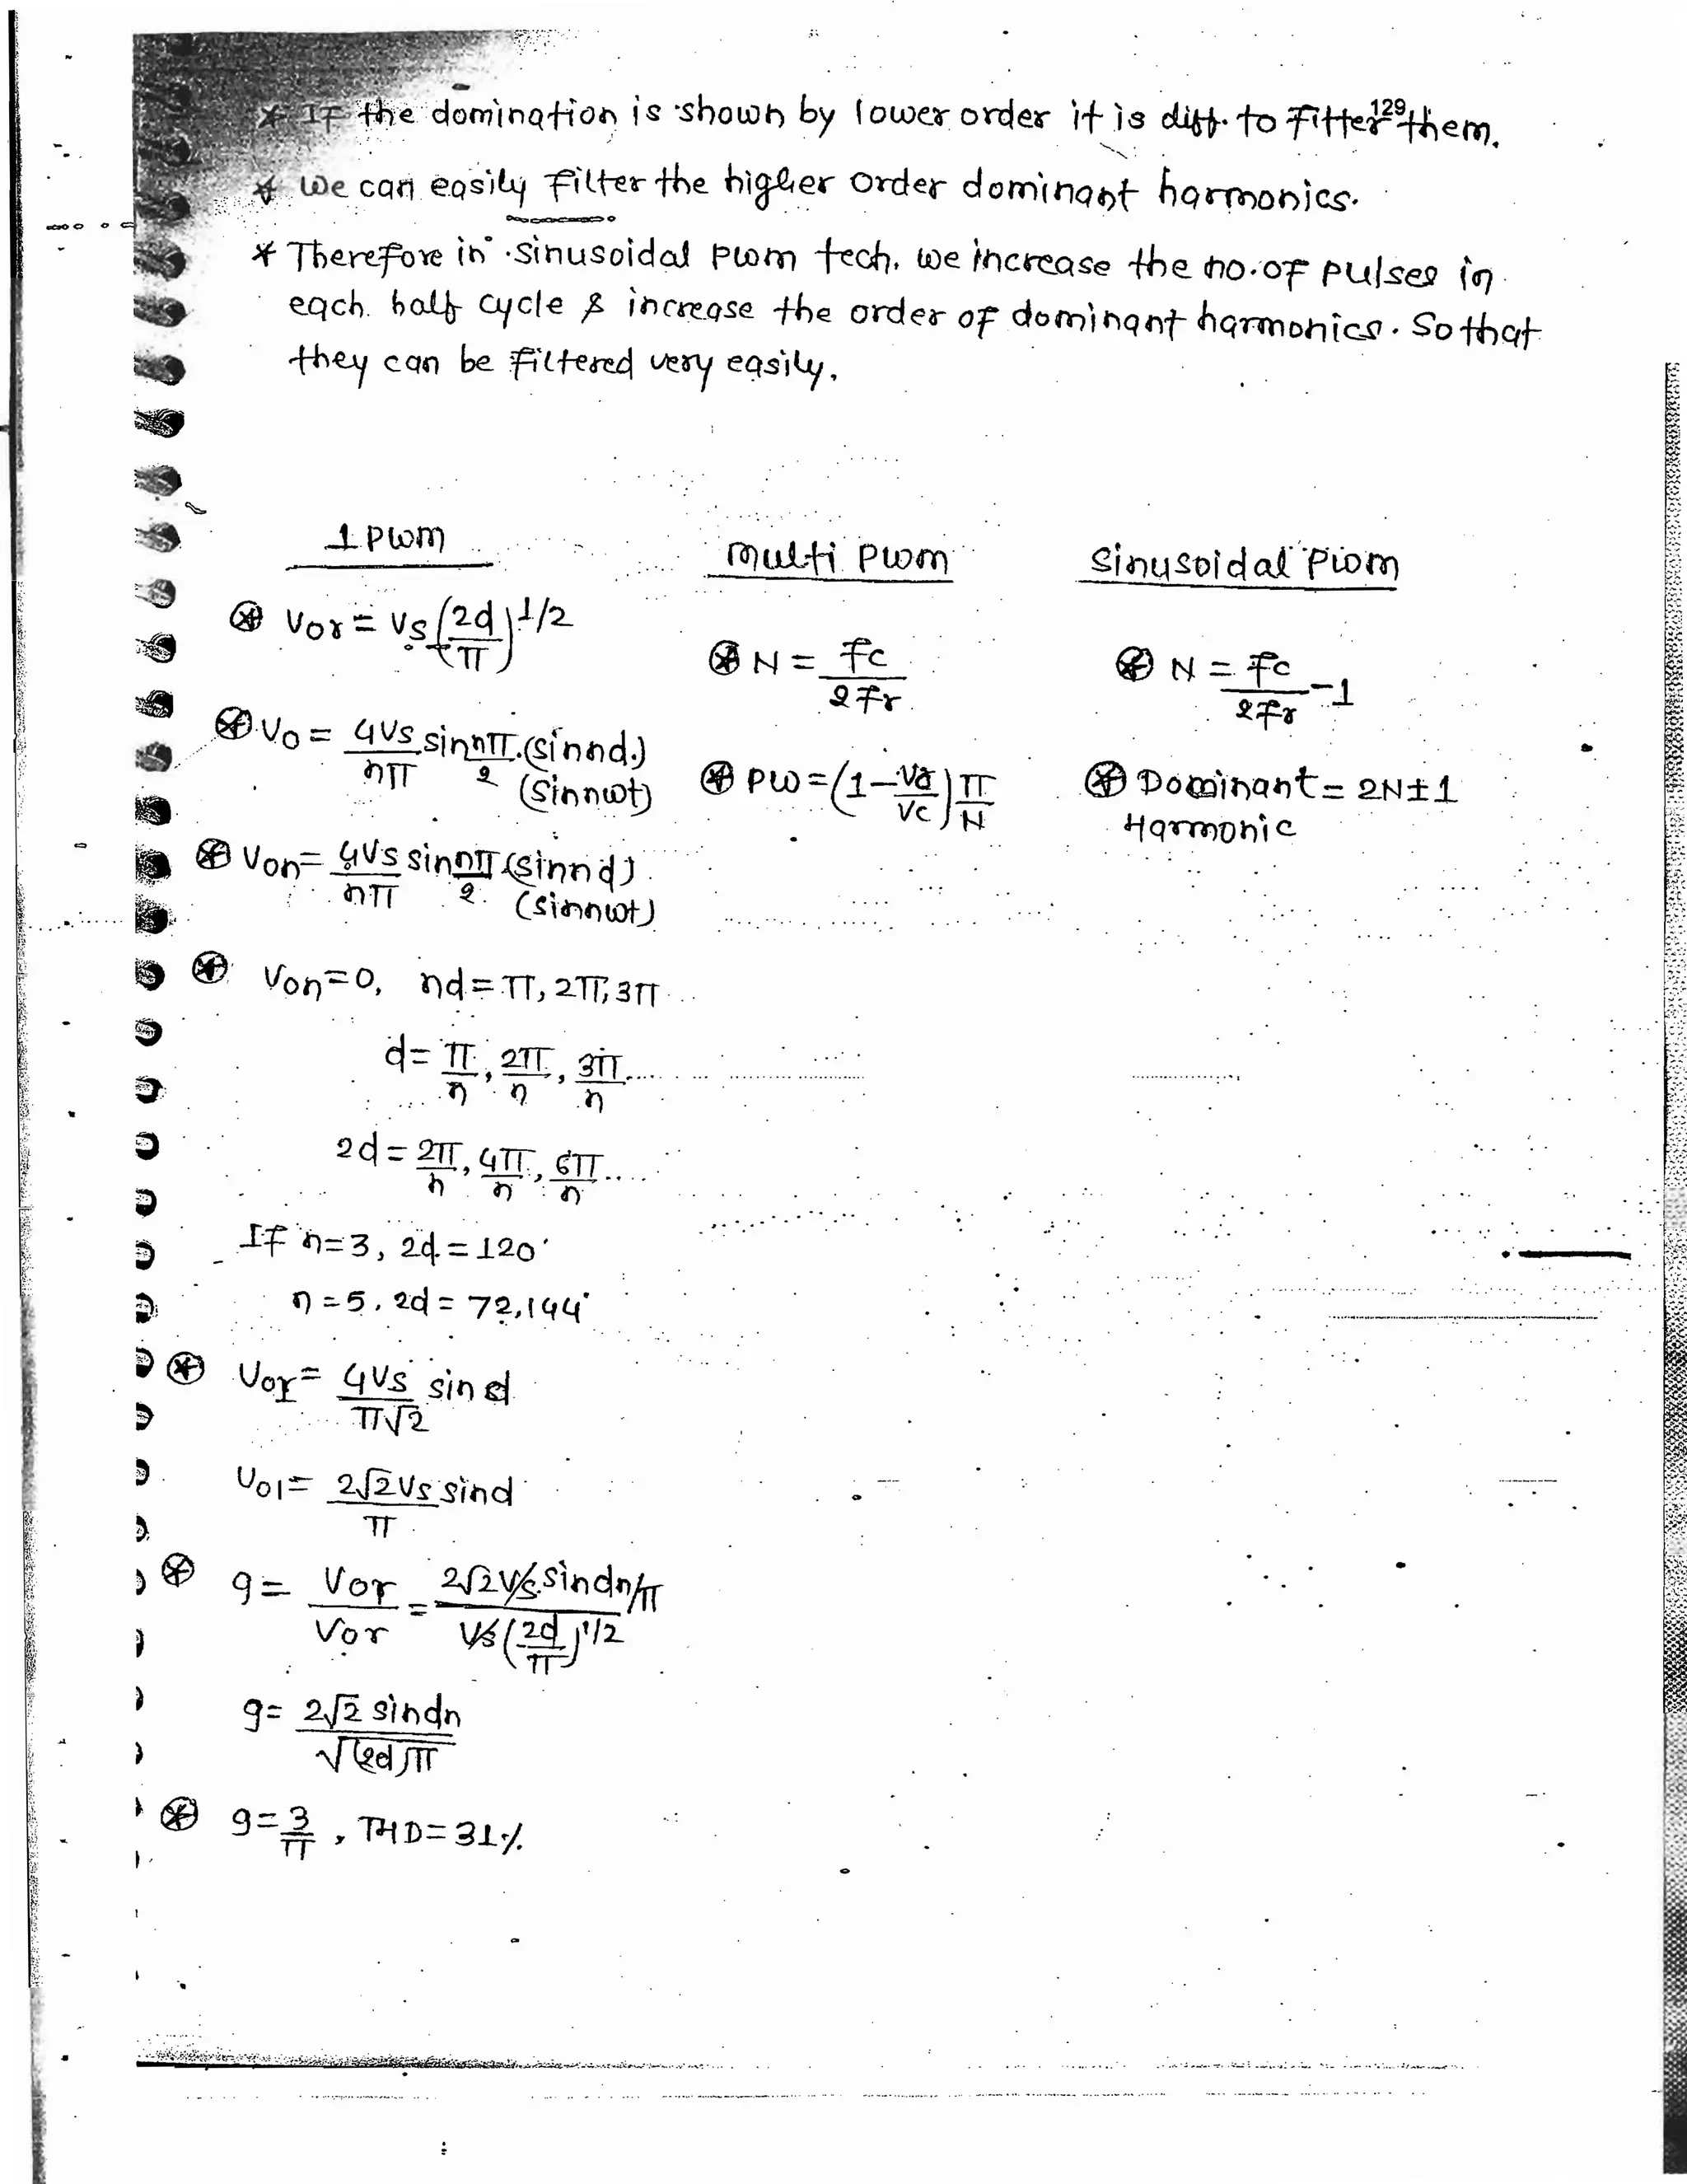 129
* If the domination is shown by lower order it is diff. to Fitter them.
* We can easily Filter the higher order dominant harmonics.
* Therefore in sinusoidal PWM tech. we increase the no. of pulses in
each half cycle & increase the order of dominant harmonics. So that
they can be filtered very easily.
1 PWM
⊛ Vor = Vs(2d/π)^1/2
⊛ Vo = 4Vs/nπ sin nπ/2 . (sin nd.)
(sin nωt)
⊛ Von = 4Vs/nπ sin nπ/2 . (sin nd)
(sin nωt)
⊛ Von = 0, nd = π, 2π, 3π
d = π/n, 2π/n, 3π/n....
2d = 2π/n, 4π/n, 6π/n....
If n=3, 2d = 120°
n=5, 2d = 72,144°
⊛ Vor = 4Vs/π√2 sin d
Vo1 = 2√2Vs/π sin d
⊛ g = Vor/Vor = 2√2Vs sin dn/π / Vs(2d/π)^1/2
g = 2√2 sin dn / √(2d)π
⊛ g = 3/π, THD = 31%
Multi PWM
⊛ N = fc/2fr
⊛ PW = (1 - Vr/Vc) π/N
Sinusoidal PWM
⊛ N = fc/2fr - 1
⊛ Dominant = 2N±1
Harmonic